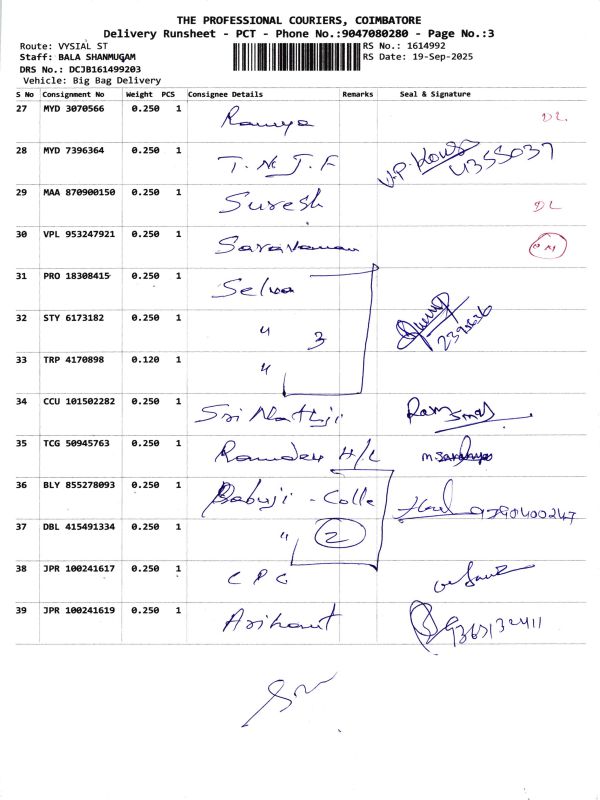 THE PROFESSIONAL COURIERS, COIMBATORE
Delivery Runsheet - PCT - Phone No.:9047080280 - Page No.:3
Route: VYSIAL ST RS No.: 1614992
Staff: BALA SHANMUGAM RS Date: 19-Sep-2025
DRS No.: DCJB161499203
Vehicle: Big Bag Delivery
S No Consignment No Weight PCS Consignee Details Remarks Seal & Signature
27 MYD 3070566 0.250 1 Ramya DL
28 MYD 7396364 0.250 1 T.N.J.F 4355037
29 MAA 870900150 0.250 1 Suresh DL
30 VPL 953247921 0.250 1 Saravanan
31 PRO 18308415 0.250 1 Selva
32 STY 6173182 0.250 1 " 3
33 TRP 4170898 0.120 1 "
34 CCU 101502282 0.250 1 Sri Nathji
35 TCG 50945763 0.250 1 Ramdev H/L
36 BLY 855278093 0.250 1 Babuji - Colle
37 DBL 415491334 0.250 1 " 2
38 JPR 100241617 0.250 1 CPC
39 JPR 100241619 0.250 1 Arihant